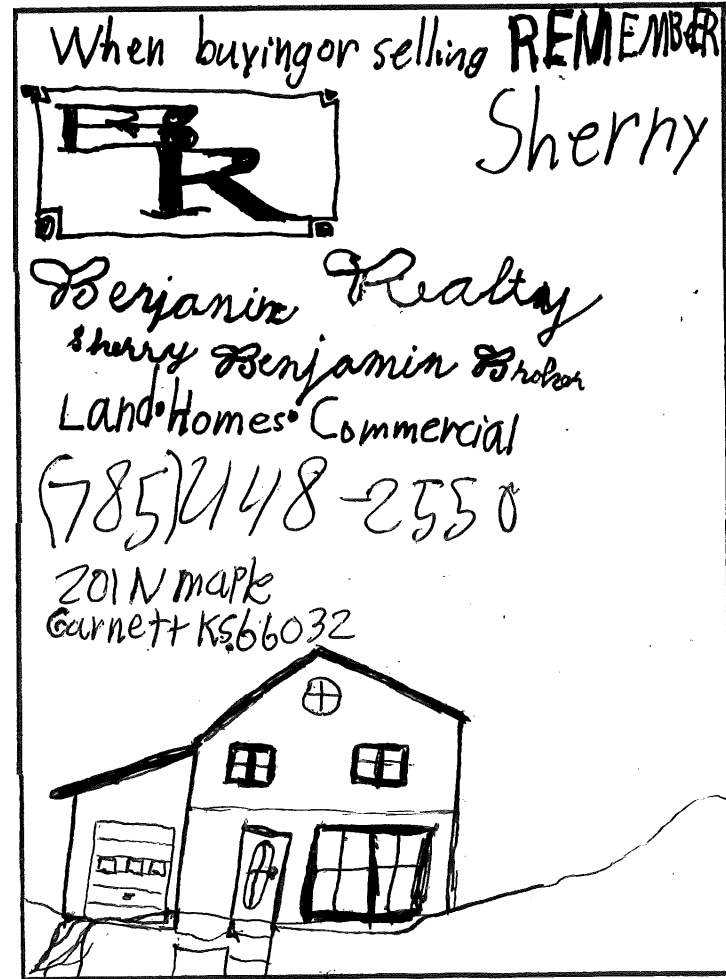 When buying or selling REMEMBER
Sherry
BR
Benjamin Realty
Sherry Benjamin Broker
Land • Homes • Commercial
(785) 448-2550
201 N maple
Garnett KS. 66032